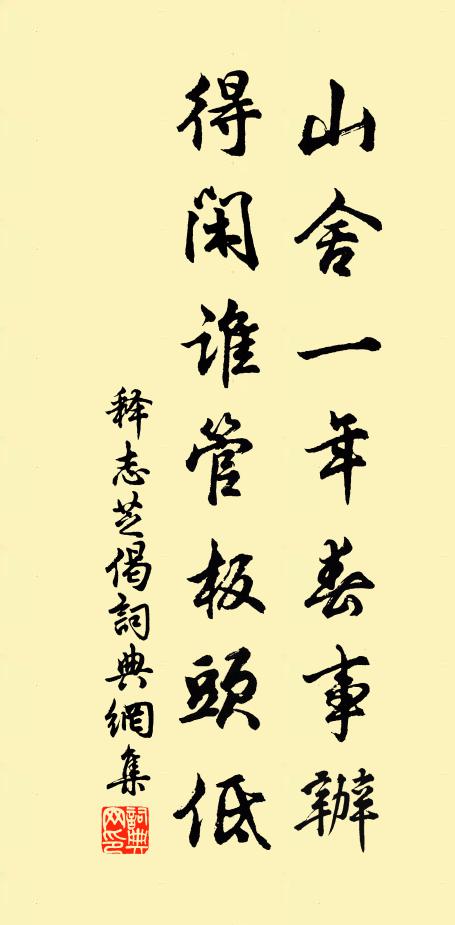 山舍一年春事辦
得閑誰管板頭低
释志芝偈詞典網集
詞典网印